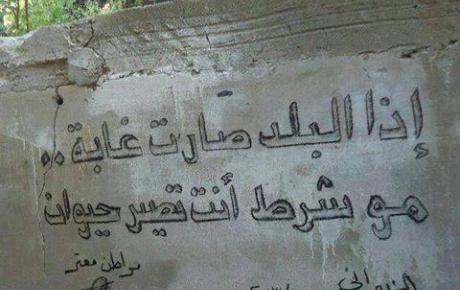 إذا البلد صارت غابة..
مو شرط أنت تصير حيوان
مواطن معتر